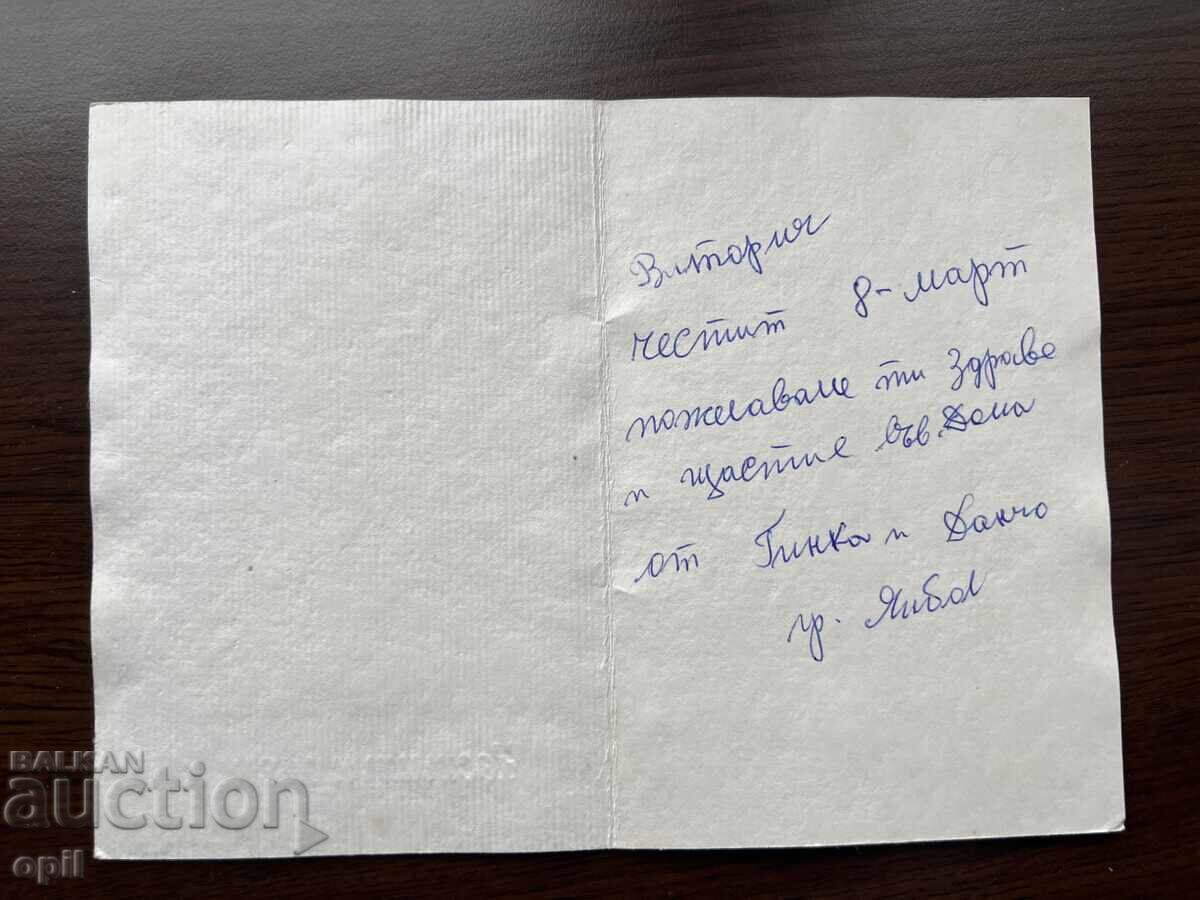 Виктория
честит 8-март
пожелаваме ти Здраве
и щастие във Дома
от Гинка и Данчо
гр. Ямбол
BALKAN
auction
opil